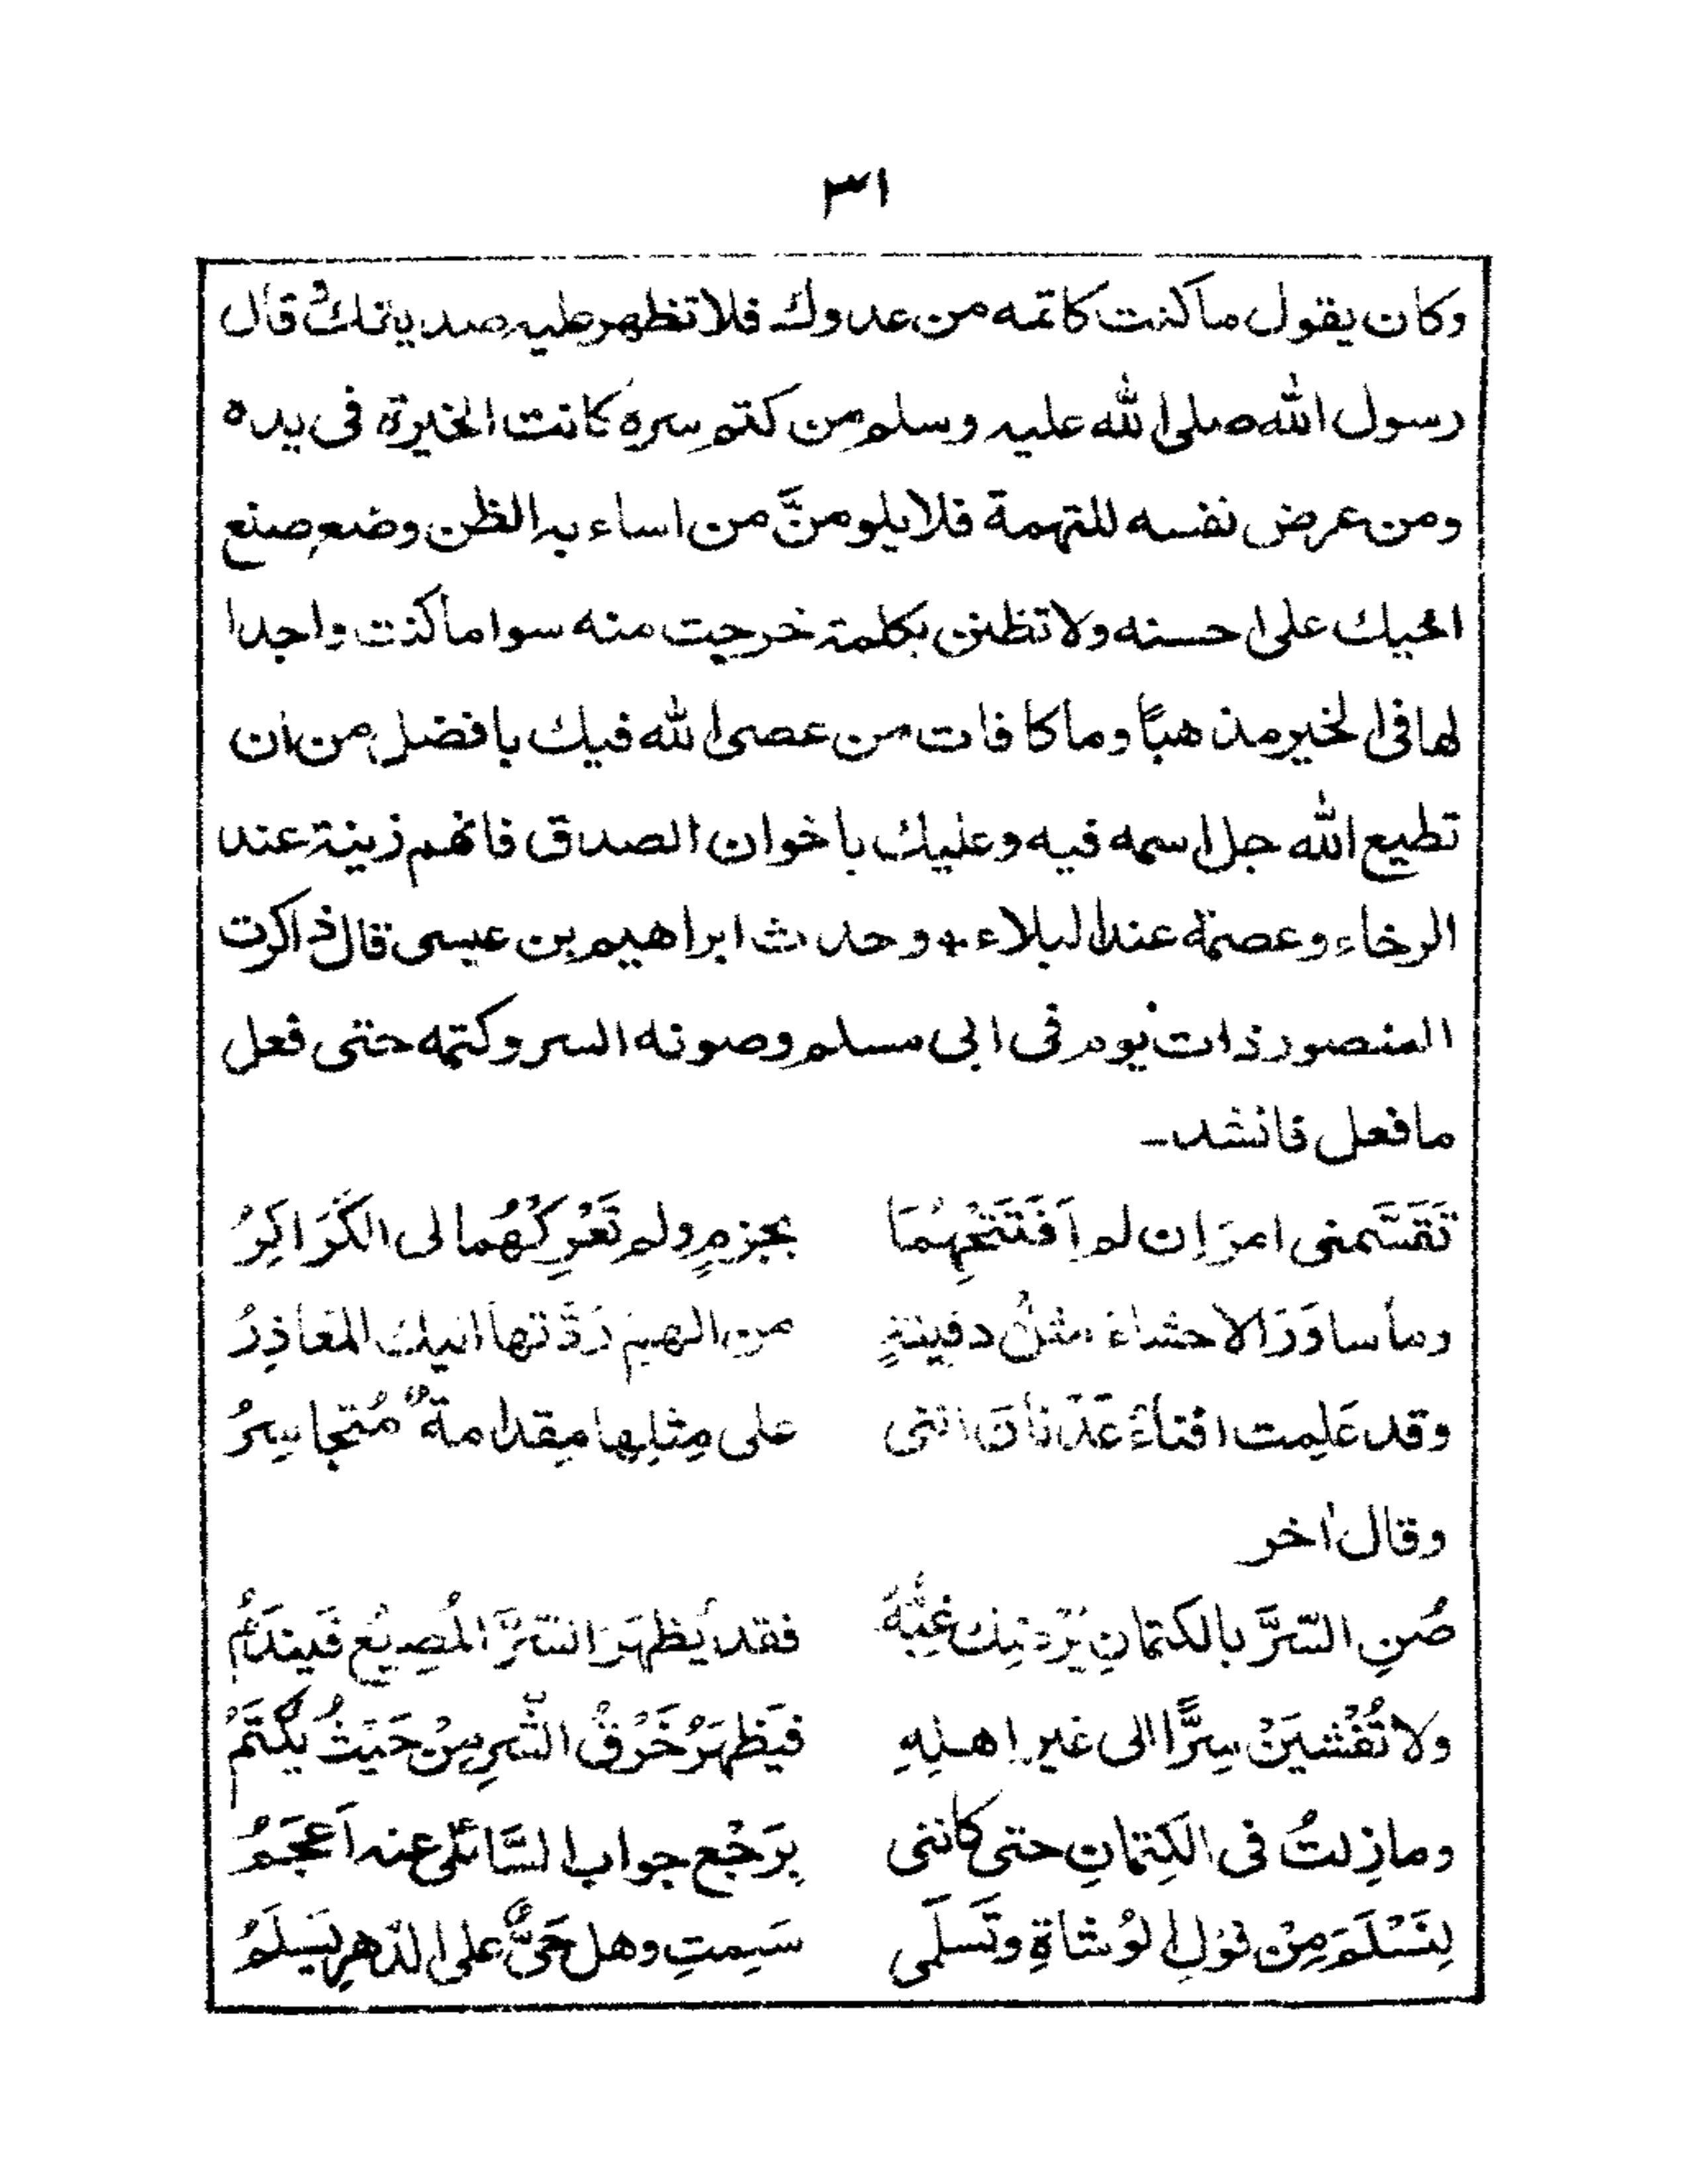 ٣١
وكان يقول ما كنت كاتمه من عدوك فلا تظهر عليه صديقك قال
رسول الله صلى الله عليه وسلم من كتم سره كانت الخيرة فى يده
ومن عرض نفسه للتهمة فلا يلومنَّ من اساء به الظن وضع صنع
اخيك على احسنه ولا تظنن بكلمة خرجت منه سوا ما كنت واجدا
لها فى الخير مذهبًا وما كافات من عصى الله فيك بافضل من ان
تطيع الله جل اسمه فيه وعليك باخوان الصدق فانهم زينة عند
الرخاء وعصمة عند البلاء * وحدث ابراهيم بن عيسى قال ذاكرت
المنصور ذات يوم فى ابى مسلم وصونه السر وكتمه حتى فعل
ما فعل فانشد—
تَقَسَّمنى امرَانِ لم اَفتَتَحْهُمَا بحزمٍ ولم تَعْرِكْهُما لى الكَرَاكِرُ
وما ساوَرَ الاحشاءَ مثلُ دفينةٍ من الهمِّ رَدَّتها اليك المَعَاذِرُ
وقد عَلِمت افناءُ عَدْنَانَ اننى على مِثلِها مِقدامةٌ مُتجاسِرُ
وقال اخر
صُنِ السّرَّ بالكتمانِ يُرْضِك غِبُّهُ فقد يُظهَرَ السّرَّ المُضِيْع فَيندَمُ
ولا تُفْشيَنْ سِرًّا الى غير اهلِهِ فيَظهَرُ خَرْقُ السّرِ مِنْ حَيْثُ يُكْتَمُ
وما زِلتُ فى الكِتمانِ حتى كاننى بِرَجْع جواب السَّائلى عنه اَعجَمُ
لِنَسْلَمَ مِنْ قولِ الوُشاةِ وتَسلَمى سَلِمتِ وهل حَىٌّ على الدّهرِ يَسْلَمُ